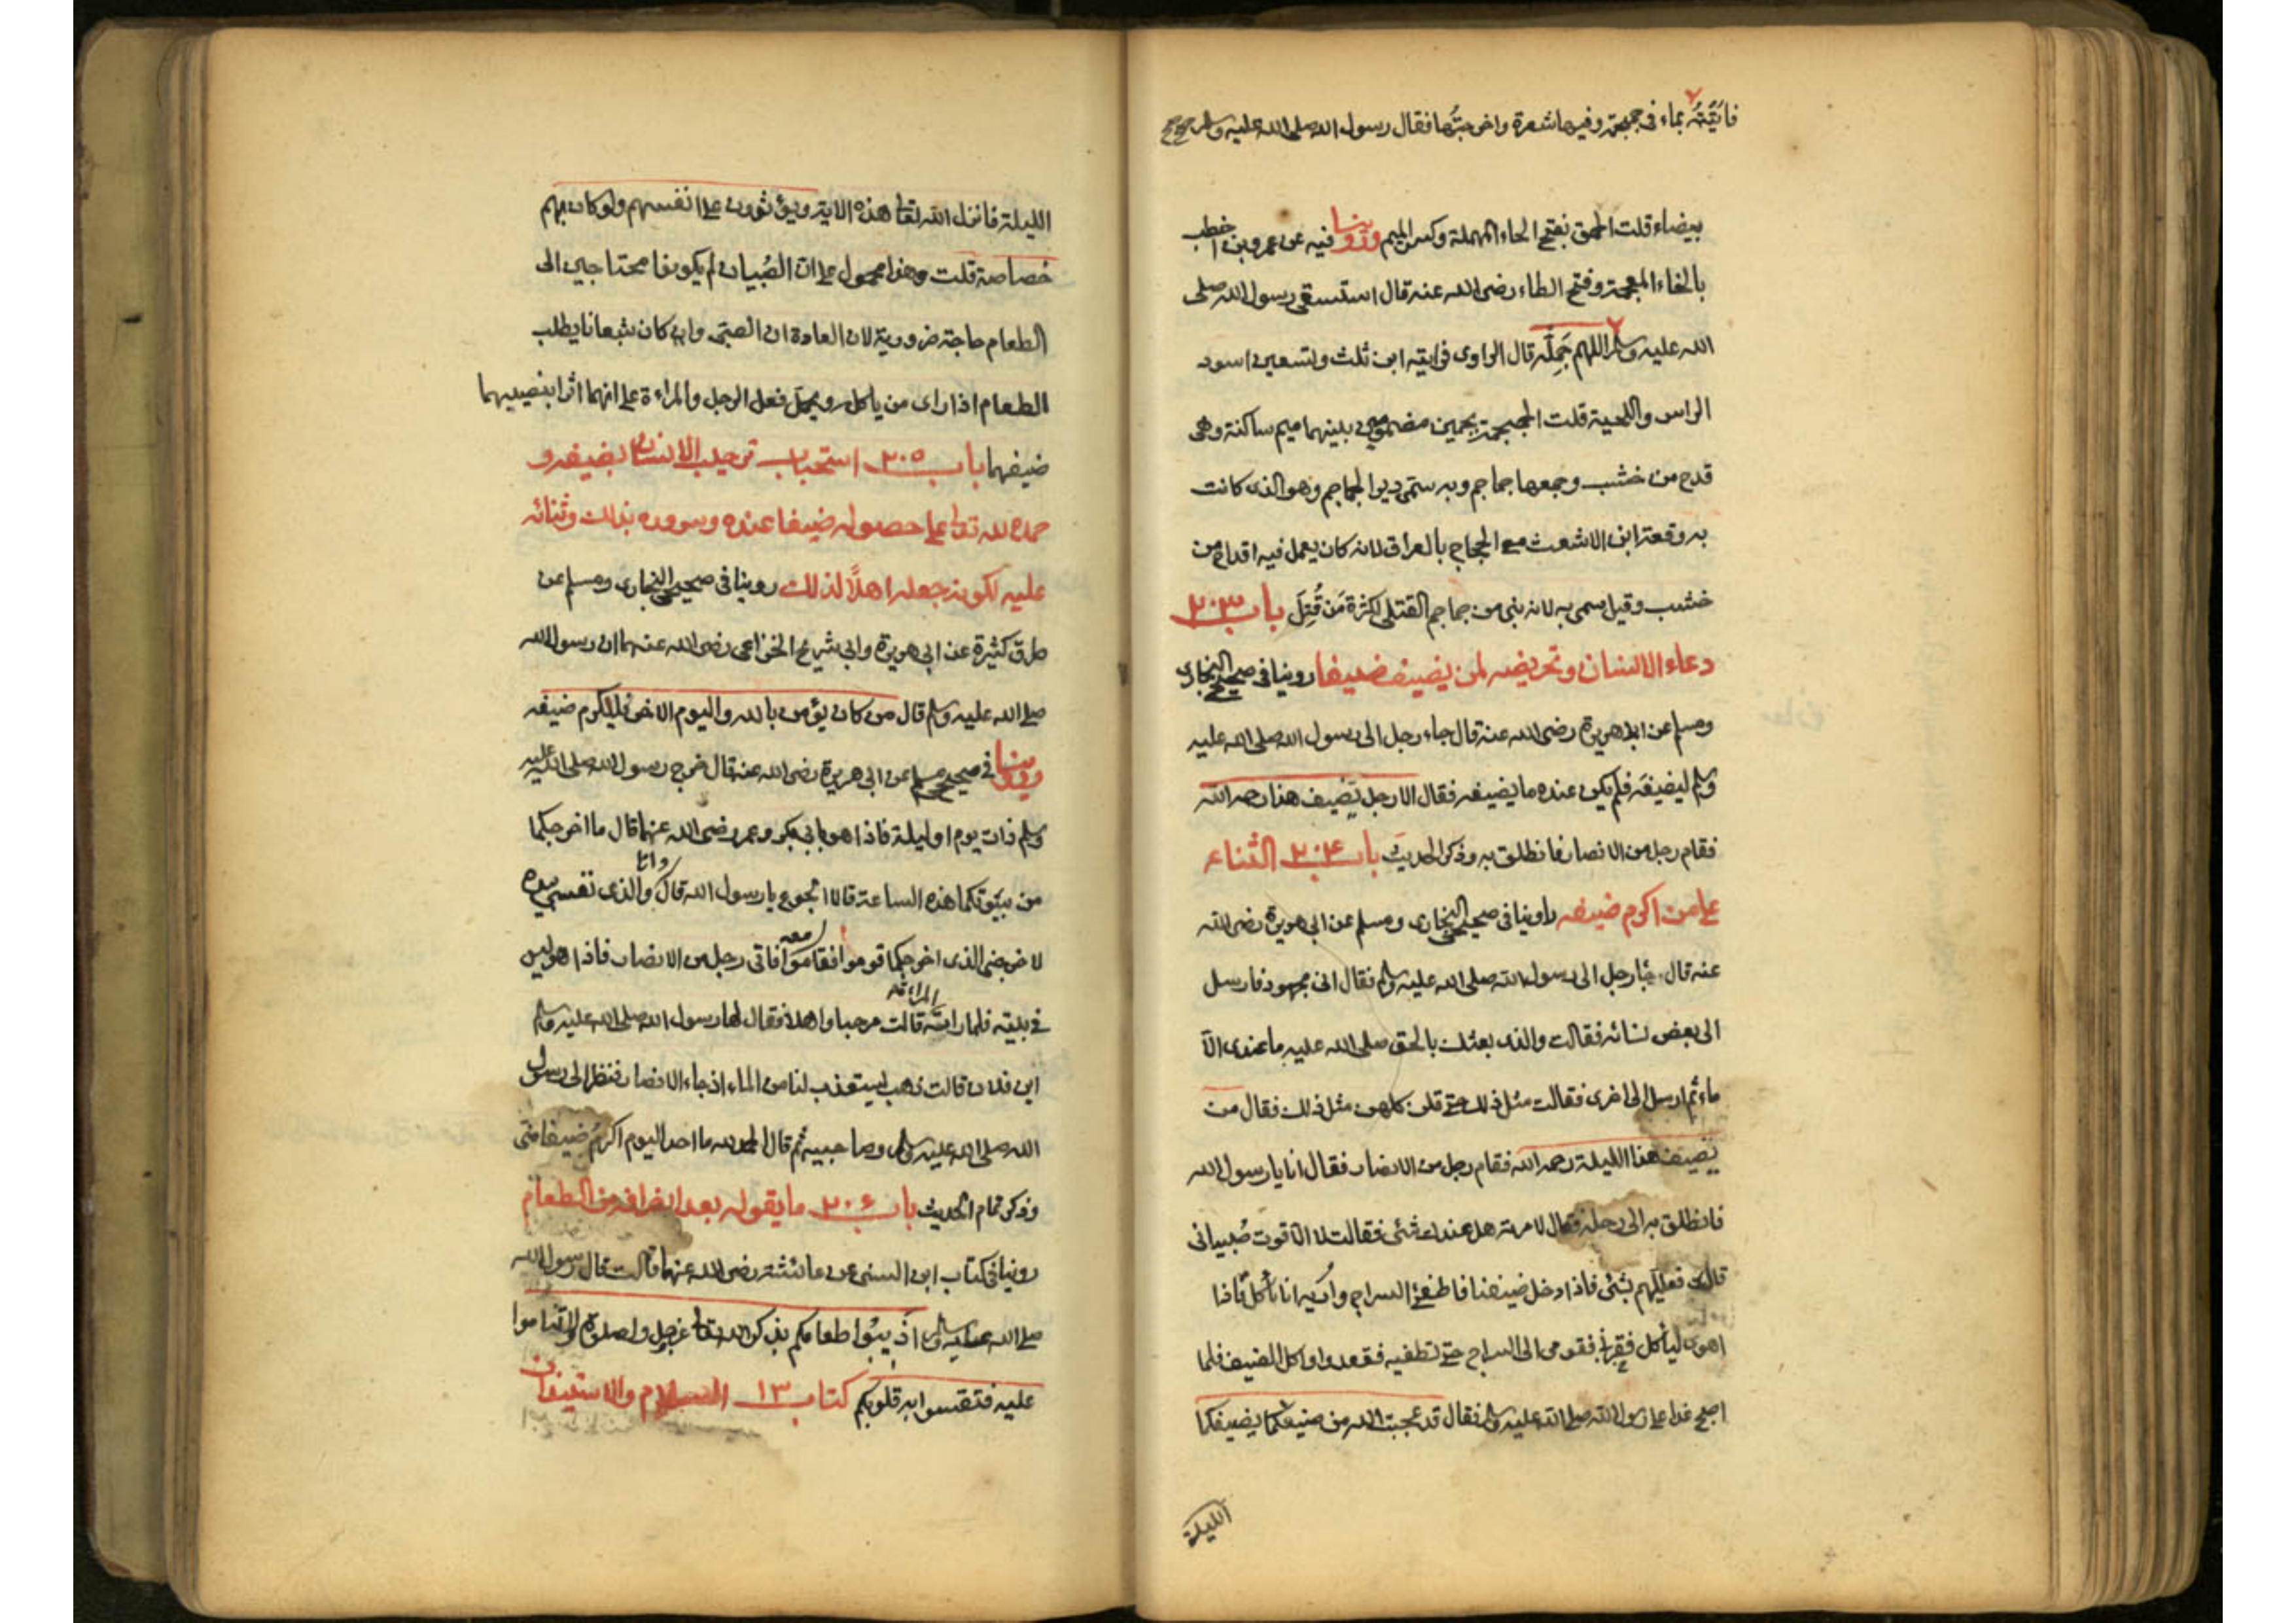 فاتيته بماء في جمجمة وفيها شعرة واخرجتها فقال رسول الله صلى الله عليه وسلم
بيضاء قلت الحمق بفتح الحاء المهملة وكسر الميم وروينا فيه عن عمرو بن اخطب
بالخاء المعجمة وفتح الطاء رضى الله عنه قال استسقى رسول الله صلى
الله عليه وسلم اللهم جَمِّلْه قال الراوى فرايته ابن ثلث وتسعين اسود
الراس واللحية قلت الجمجمة بجيمين مضمومتين بينهما ميم ساكنة وهى
قدح من خشب وجمعها جماجم وبه ستمى دير الجماجم وهو الذى كانت
به وقعة ابن الاشعث مع الحجاج بالعراق لانه كان يعمل فيه اقداح من
خشب وقيل سمى به لانه بنى من جماجم القتلى لكثرة مَن قُتِلَ باب ٢٠٣
دعاء الانسان وتحريضه لمن يضيف ضيفا روينا فى صحيحى البخارى
ومسلم عن ابى هريرة رضى الله عنه قال جاء رجل الى رسول الله صلى الله عليه
وسلم ليضيفه فلم يكن عنده ما يضيفه فقال الا رجل يضيف هذا رحمه الله
فقام رجل من الانصار فانطلق به وذكر الحديث باب ٢٠٤ الثناء
على من اكرم ضيفه روينا فى صحيحى البخارى ومسلم عن ابى هريرة رضى الله
عنه قال جاء رجل الى رسول الله صلى الله عليه وسلم فقال انى مجهود فارسل
الى بعض نسائه فقالت والذى بعثك بالحق صلى الله عليه ما عندى الا
ماء ثم ارسل الى اخرى فقالت مثل ذلك حتى قلن كلهن مثل ذلك فقال من
يضيف هذا الليلة رحمه الله فقام رجل من الانصار فقال انا يا رسول الله
فانطلق به الى رحله فقال لامرته هل عندك شئى فقالت لا الا قوت صُبيانى
قال فعلليهم بشئى فاذا دخل ضيفنا فاطفئ السراج واريه انا ناكل فاذا
اهوى لياكل فقومى الى السراج حتى تطفيه فقعدوا واكل الضيف فلما
اصبح غدا على رسول الله صلى الله عليه وسلم فقال قد عجبت الله من صنيعكما بضيفكما
الليلة
الليلة فانزل الله تعالى هذه الاية ويؤثرون على انفسهم ولو كان بهم
خصاصة قلت وهذا محمول على ان الصُبيان لم يكونوا محتاجين الى
الطعام حاجة ضرورية لان العادة ان الصبى وان كان شبعانا يطلب
الطعام اذا راى من ياكل ويحمل فعل الرجل والمراءة على انهما اثرا بنصيبهما
ضيفهما باب ٢٠٥ استحباب ترحيب الانسان بضيفه و
حمده لله تعالى على حصوله ضيفا عنده وسروره بذلك وثنائه
عليه لكونه جعله اهلًا لذلك روينا فى صحيحى البخارى ومسلم عن
طرق كثيرة عن ابى هريرة وابى شريح الخزاعى رضى الله عنهما ان رسول الله
صلى الله عليه وسلم قال من كان يؤمن بالله واليوم الاخر فليكرم ضيفه
وروينا فى صحيح مسلم عن ابى هريرة رضى الله عنه قال خرج رسول الله صلى الله عليه
وسلم ذات يوم او ليلة فاذا هو بابى بكر وعمر رضى الله عنهما قال ما اخرجكما
من بيوتكما هذه الساعة قالا الجوع يا رسول الله قال وانا والذى نفسى بيده
لاخرجنى الذى اخرجكما قوموا فقاموا معه فاتى رجل من الانصار فاذا هو ليس
فى بيته فلما راته المراءة قالت مرحبا واهلا فقال لها رسول الله صلى الله عليه وسلم
اين فلان قالت ذهب يستعذب لنا من الماء اذ جاء الانصار فنظر الى رسول
الله صلى الله عليه وسلم وصاحبيه ثم قال الحمد لله ما احد اليوم اكرمُ ضيفا منى
وذكر تمام الحديث باب ٢٠٦ ما يقوله بعد انصرافه من الطعام
روينا فى كتاب ابن السنى عن عائشة رضى الله عنها قالت قال رسول الله
صلى الله عليه وسلم اذيبوا طعامكم بذكر الله تعالى عز وجل والصلوة ولا تناموا
عليه فتقسوا به قلوبكم كتاب ١٣ السلام والاستيذان